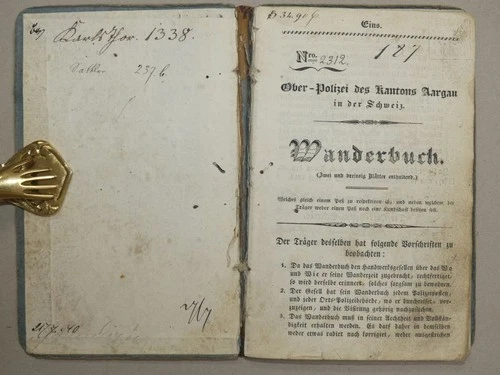 Karlsthor. 1338.
Sattler 237 b
Eins.
187
Nro. 2312.
Ober-Polizei des Kantons Aargau
in der Schweiz.
Wanderbuch.
(Zwei und dreissig Blätter enthaltend.)
Welches gleich einem Paß zu respektiren ist, und neben welchem der
Träger weder einen Paß noch eine Kundschaft besitzen soll.
Der Träger desselben hat folgende Vorschriften zu
beobachten:
1. Da das Wanderbuch den Handwerksgesellen über das Wo
und Wie er seine Wanderzeit zugebracht, rechtfertiget,
so wird derselbe erinnert, solches sorgsam zu bewahren.
2. Der Gesell hat sein Wanderbuch jedem Polizeiposten,
und jeder Orts-Polizeibehörde, wo er durchreist, vor-
zuzeigen, und die Visirung gehörig nachzusuchen.
3. Das Wanderbuch muß in seiner Aechtheit und Vollstän-
digkeit erhalten werden. Es darf daher in demselben
weder etwas radirt noch korrigirt, weder ausgestrichen